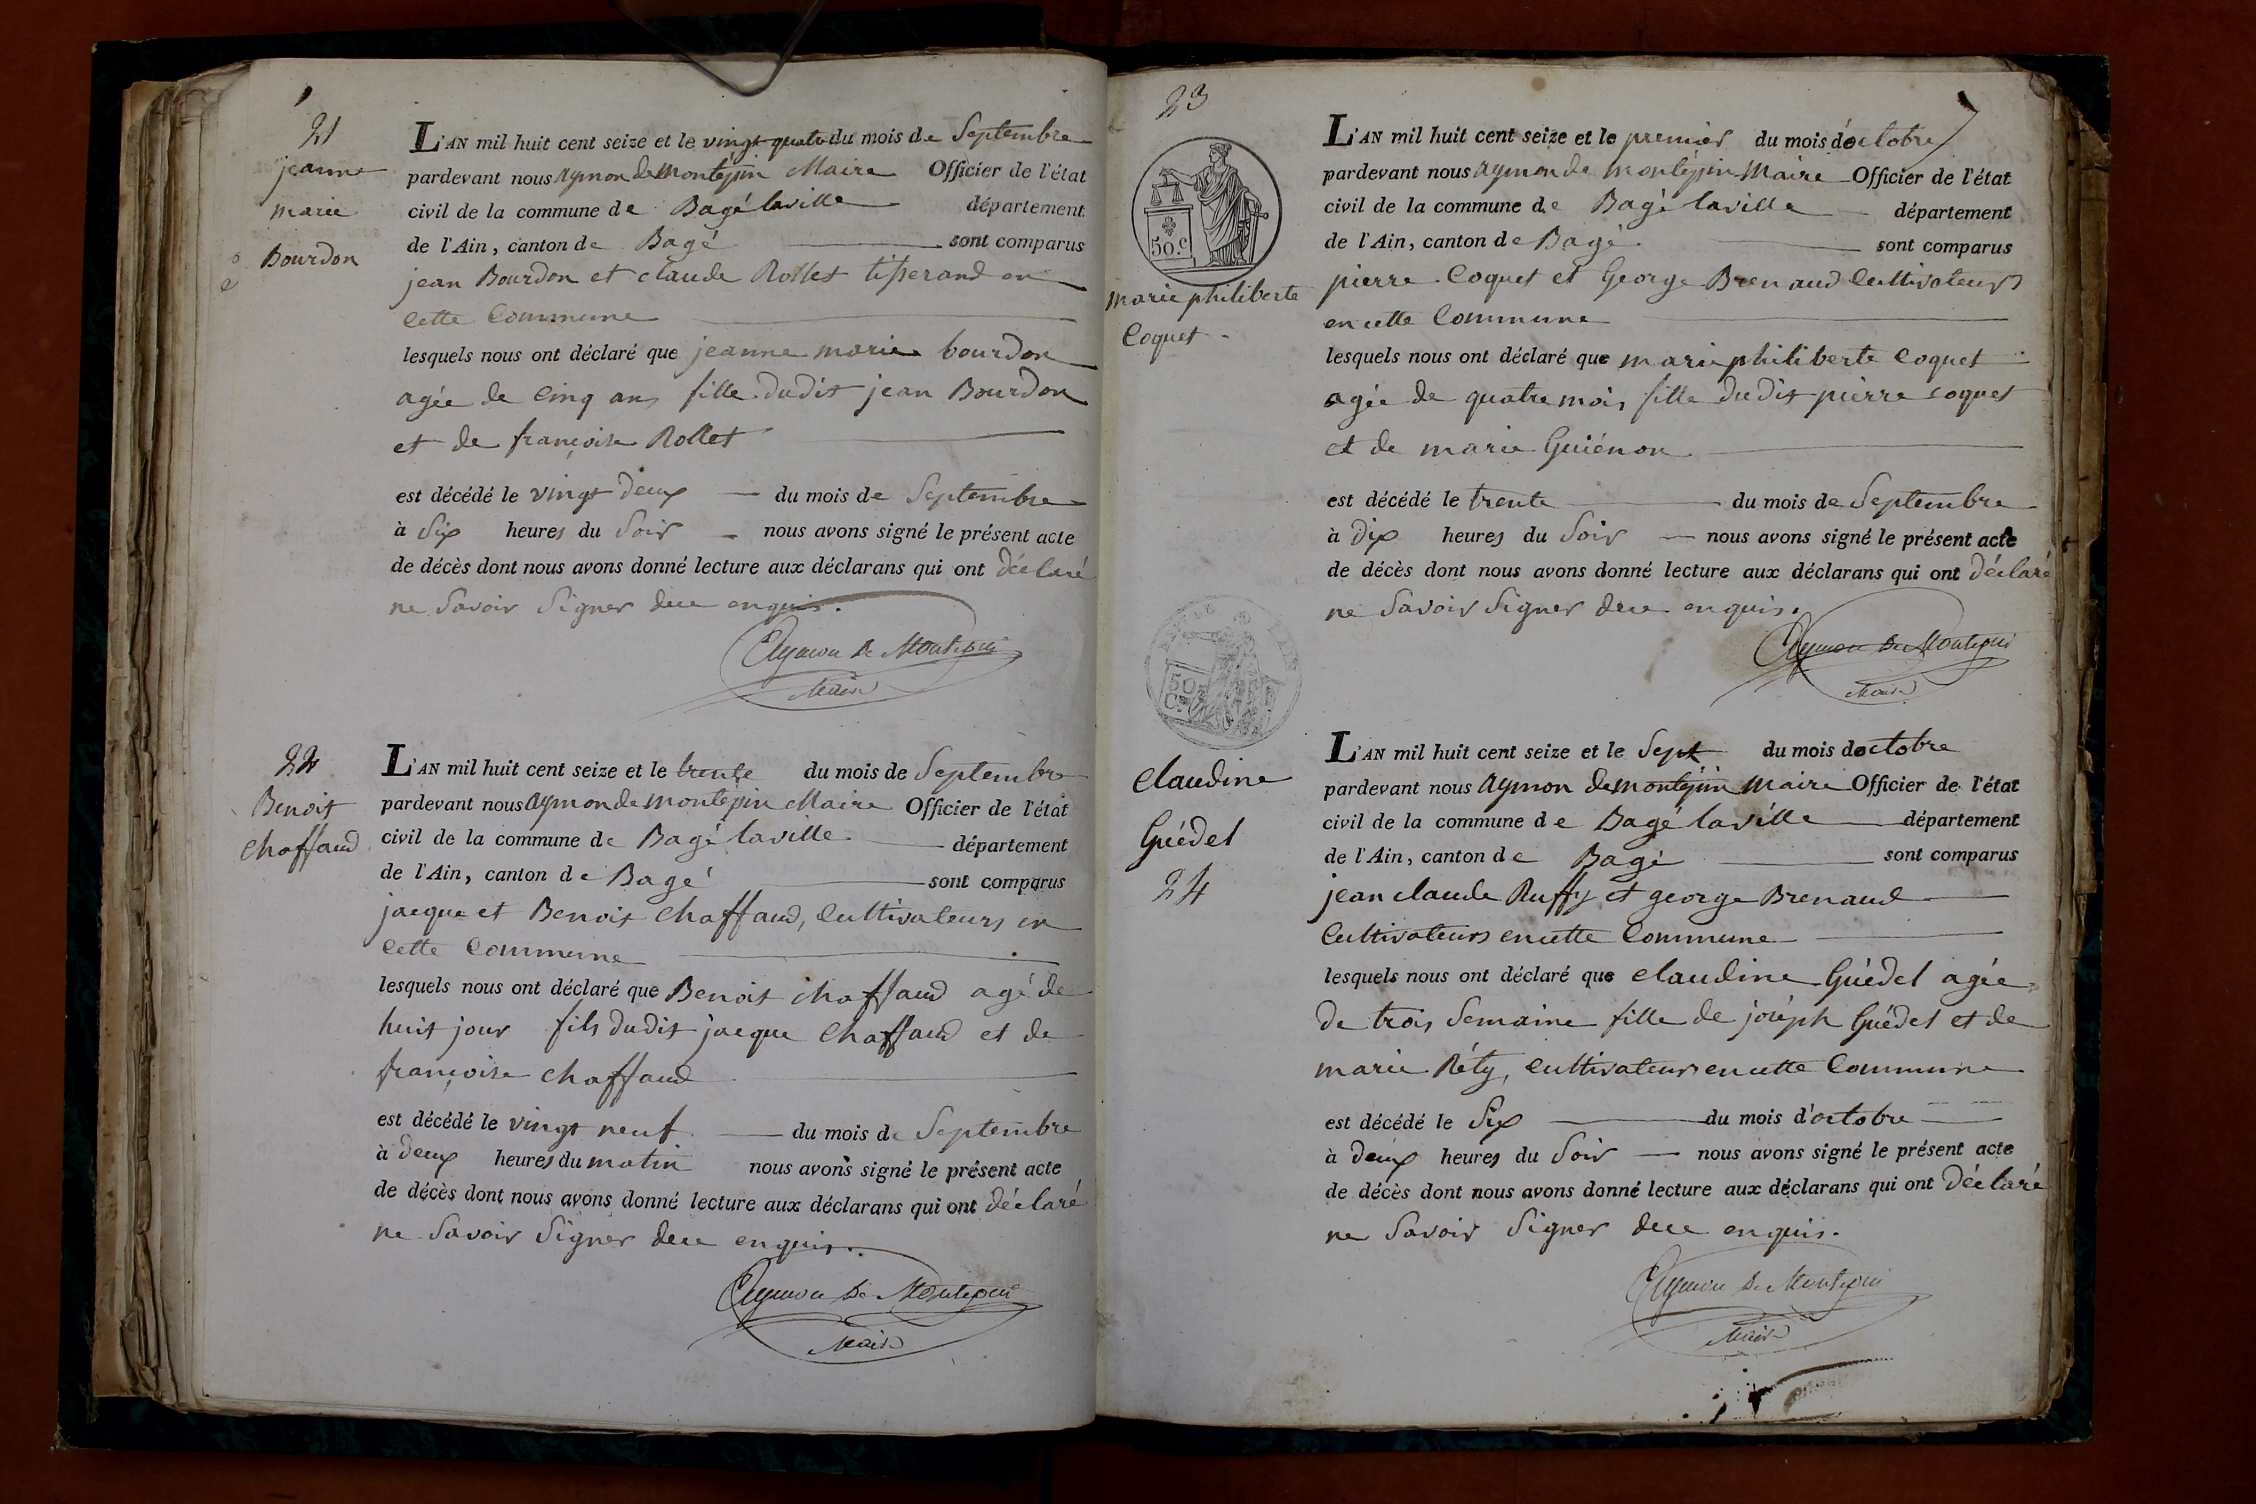 21
jeanne
marie
Bourdon
L'AN mil huit cent seize et le vingt quatre du mois de Septembre
pardevant nous Aymon de Montépin Maire Officier de l'état
civil de la commune de Bagé laville département
de l'Ain, canton de Bagé sont comparus
jean Bourdon et claude Rollet tisserand en
cette Commune
lesquels nous ont déclaré que jeanne marie bourdon
agée de Cinq ans fille dudit jean Bourdon
et de françoise Rollet
est décédé le vingt deux du mois de Septembre
à Six heures du Soir nous avons signé le présent acte
de décès dont nous avons donné lecture aux déclarans qui ont déclaré
ne Savoir Signer de ce enquis.
Aymon De Montepin
Maire
22
Benoit
Chaffaud
L'AN mil huit cent seize et le trente du mois de Septembre
pardevant nous Aymon de Montépin Maire Officier de l'état
civil de la commune de Bagé laville département
de l'Ain, canton de Bagé sont comparus
jacque et Benoit Chaffaud, Cultivateurs en
cette Commune
lesquels nous ont déclaré que Benoit Chaffaud agé de
huit jour fils dudit jacque Chaffaud et de
françoise Chaffaud
est décédé le vingt neuf du mois de Septembre
à deux heures du matin nous avons signé le présent acte
de décès dont nous avons donné lecture aux déclarans qui ont déclaré
ne Savoir Signer de ce enquis.
Aymon De Montepin
Maire
23
50 c.
marie philiberte
Coquet
L'AN mil huit cent seize et le premier du mois d'octobre
pardevant nous Aymon de Montépin Maire Officier de l'état
civil de la commune de Bagé laville département
de l'Ain, canton de Bagé sont comparus
pierre Coquet et George Brenaud Cultivateurs
en cette Commune
lesquels nous ont déclaré que marie philiberte Coquet
agée de quatre mois fille dudit pierre coquet
et de marie Guiénon
est décédé le trente du mois de Septembre
à dix heures du Soir nous avons signé le présent acte
de décès dont nous avons donné lecture aux déclarans qui ont déclaré
ne Savoir Signer de ce enquis.
Aymon De Montepin
Maire
50
Claudine
Guédel
24
L'AN mil huit cent seize et le Sept du mois d'octobre
pardevant nous Aymon de Montépin Maire Officier de l'état
civil de la commune de Bagé laville département
de l'Ain, canton de Bagé sont comparus
jean claude Ruffy et george Brenaud
Cultivateurs en cette Commune
lesquels nous ont déclaré que Claudine Guédel agée
de trois Semaine fille de joséph Guédel et de
marie Réty, Cultivateurs en cette Commune
est décédé le Six du mois d'octobre
à deux heures du Soir nous avons signé le présent acte
de décès dont nous avons donné lecture aux déclarans qui ont déclaré
ne Savoir Signer de ce enquis.
Aymon De Montepin
Maire